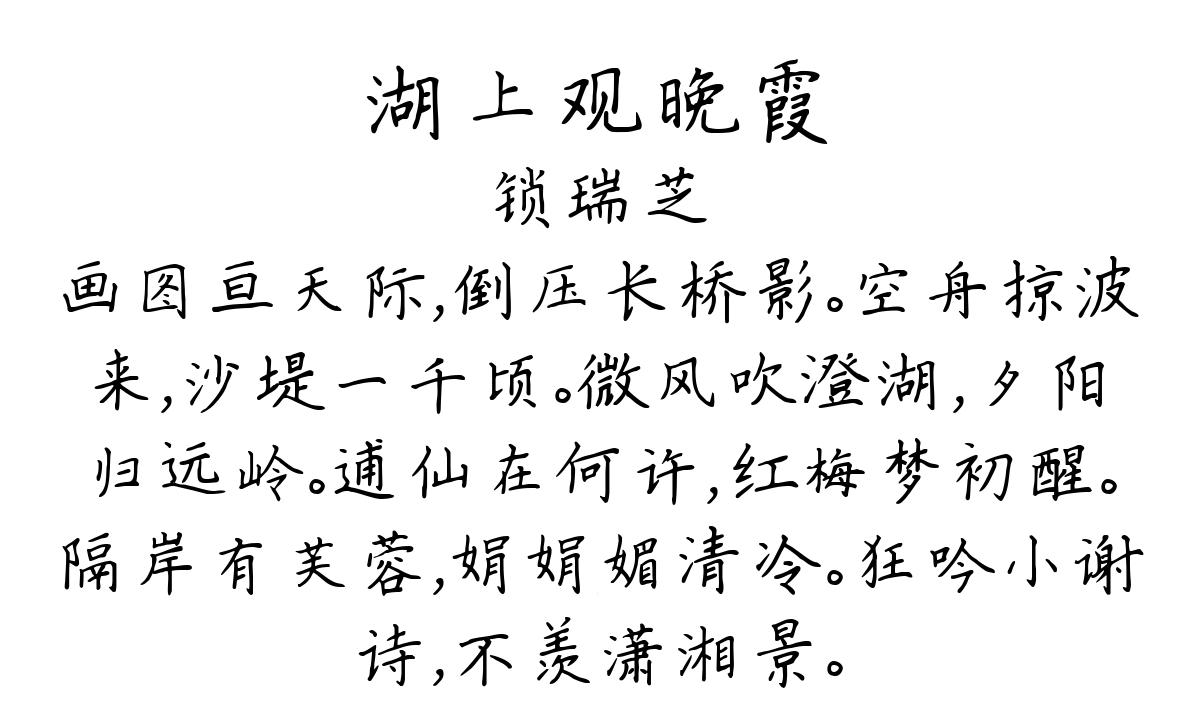 湖上观晚霞
锁瑞芝
画图亘天际,倒压长桥影。空舟掠波
来,沙堤一千顷。微风吹澄湖,夕阳
归远岭。逋仙在何许,红梅梦初醒。
隔岸有芙蓉,娟娟媚清冷。狂吟小谢
诗,不羡潇湘景。